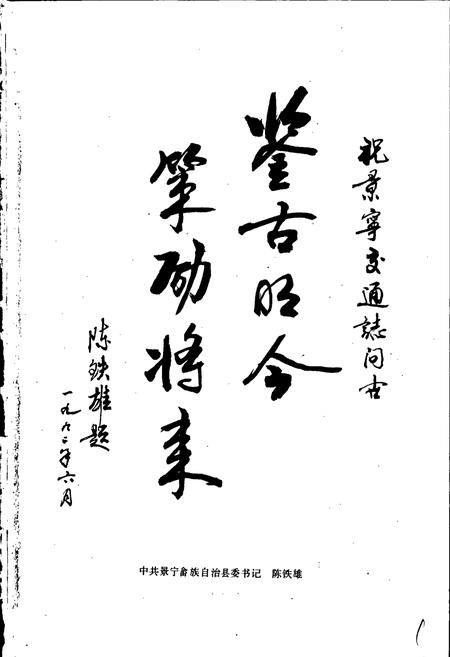 祝景寧交通誌问世
鉴古明今
策励将来
陈铁雄题
一九八八年六月
中共景宁畲族自治县委书记 陈铁雄